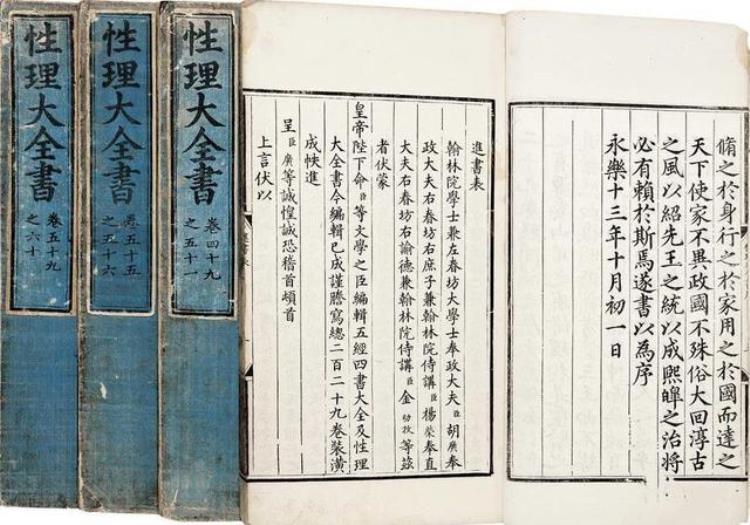 脩之於身行之於家用之於國而達之
天下使家不異政國不殊俗大回淳古
之風以紹先王之統以成熙皞之治將
必有賴於斯焉遂書以為序
永樂十三年十月初一日
進書表
翰林院學士兼左春坊大學士奉政大夫臣胡廣奉
政大夫右春坊右庶子兼翰林院侍講臣楊榮奉直
大夫右春坊右諭德兼翰林院侍講臣金幼孜等茲
者伏蒙
皇帝陛下命臣等文學之臣編輯五經四書大全及性理
大全書今編輯已成謹謄寫總二百二十九卷裝潢
成帙進
呈臣廣等誠惶誠恐稽首頓首
上言伏以
性理大全書
卷四十九
之五十一
性理大全書
卷五十五
之五十六
性理大全書
卷五十九
之六十